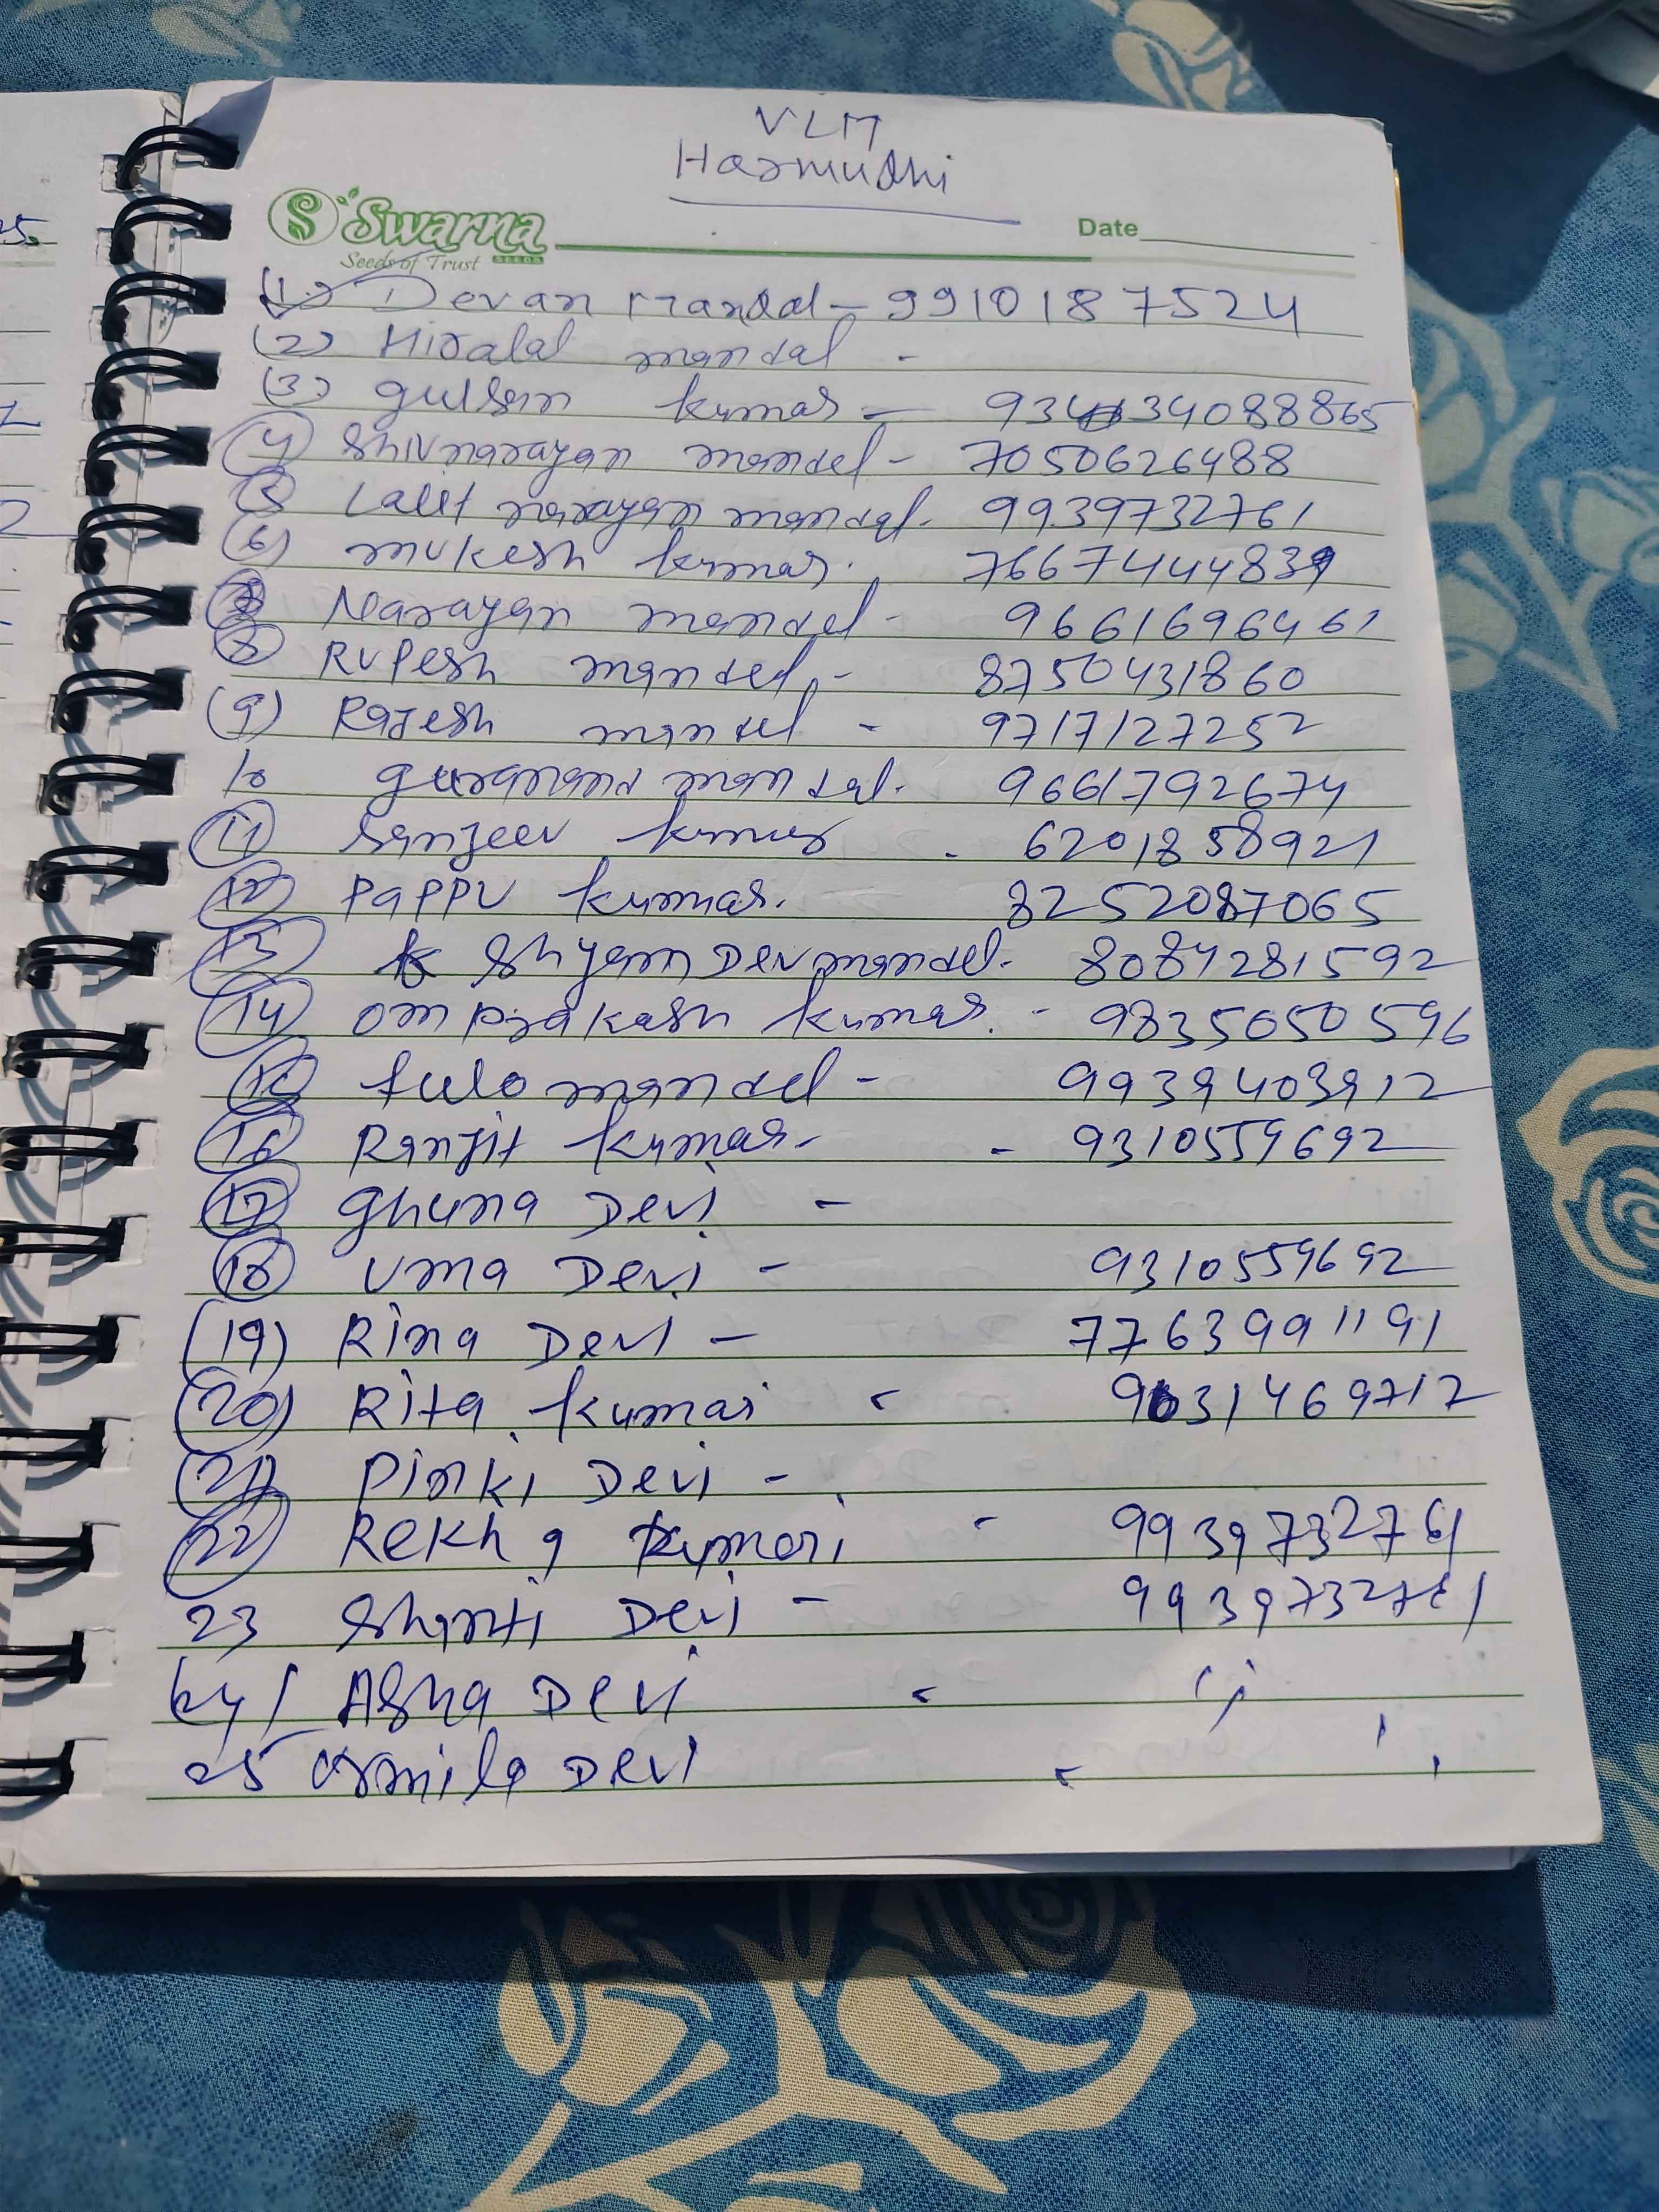 VLM
Harmudhi
Swarna
Seeds of Trust SEEDS
Date
(1) Devan Mandal - 9910187524
(2) Hiralal mandal -
(3) gulsan kumar - 93434088865
(4) Shivnarayan mandal - 7050626488
(5) Lalit narayan mandal - 9939732761
(6) mukesh kumar. 7667444839
(7) Narayan mandal - 9661696461
(8) Rupesh mandal - 8750431860
(9) Rajesh mandal - 9717127252
10 guranand mandal. 9661792674
(11) Sanjeev kumar - 6201858921
(12) PaPPU kumar. 8252087065
(13) Shyam Dev mandal - 8084281592
(14) om prakash kumar - 9835050596
(15) fulo mandal - 9939403912
(16) Ranjit kumar - 9310559692
(17) ghuna Devi -
(18) Uma Devi - 9310559692
(19) Rina Devi - 7763991191
(20) Rita kumari - 9631469712
(21) Pinki Devi -
(22) Rekha Kumari - 9939732761
23 Shanti Devi - 9939732761
24) Asha Devi - "
25 Urmila Devi - "
25.
2